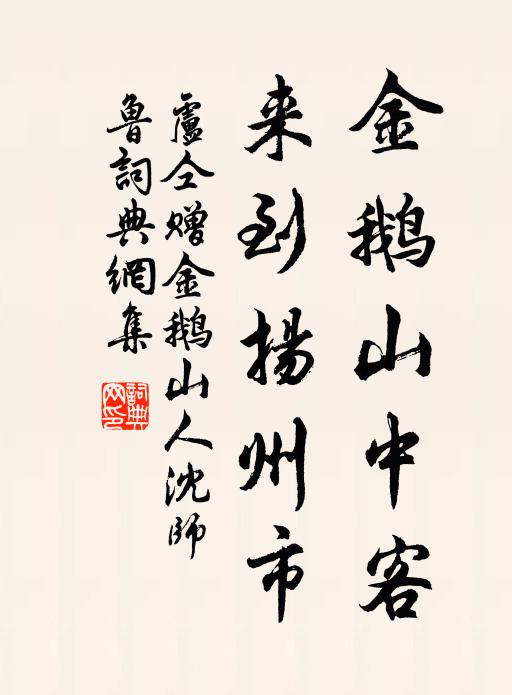 金鵝山中客
来到揚州市
盧仝贈金鵝山人沈師
魯詞典網集
詞典网印